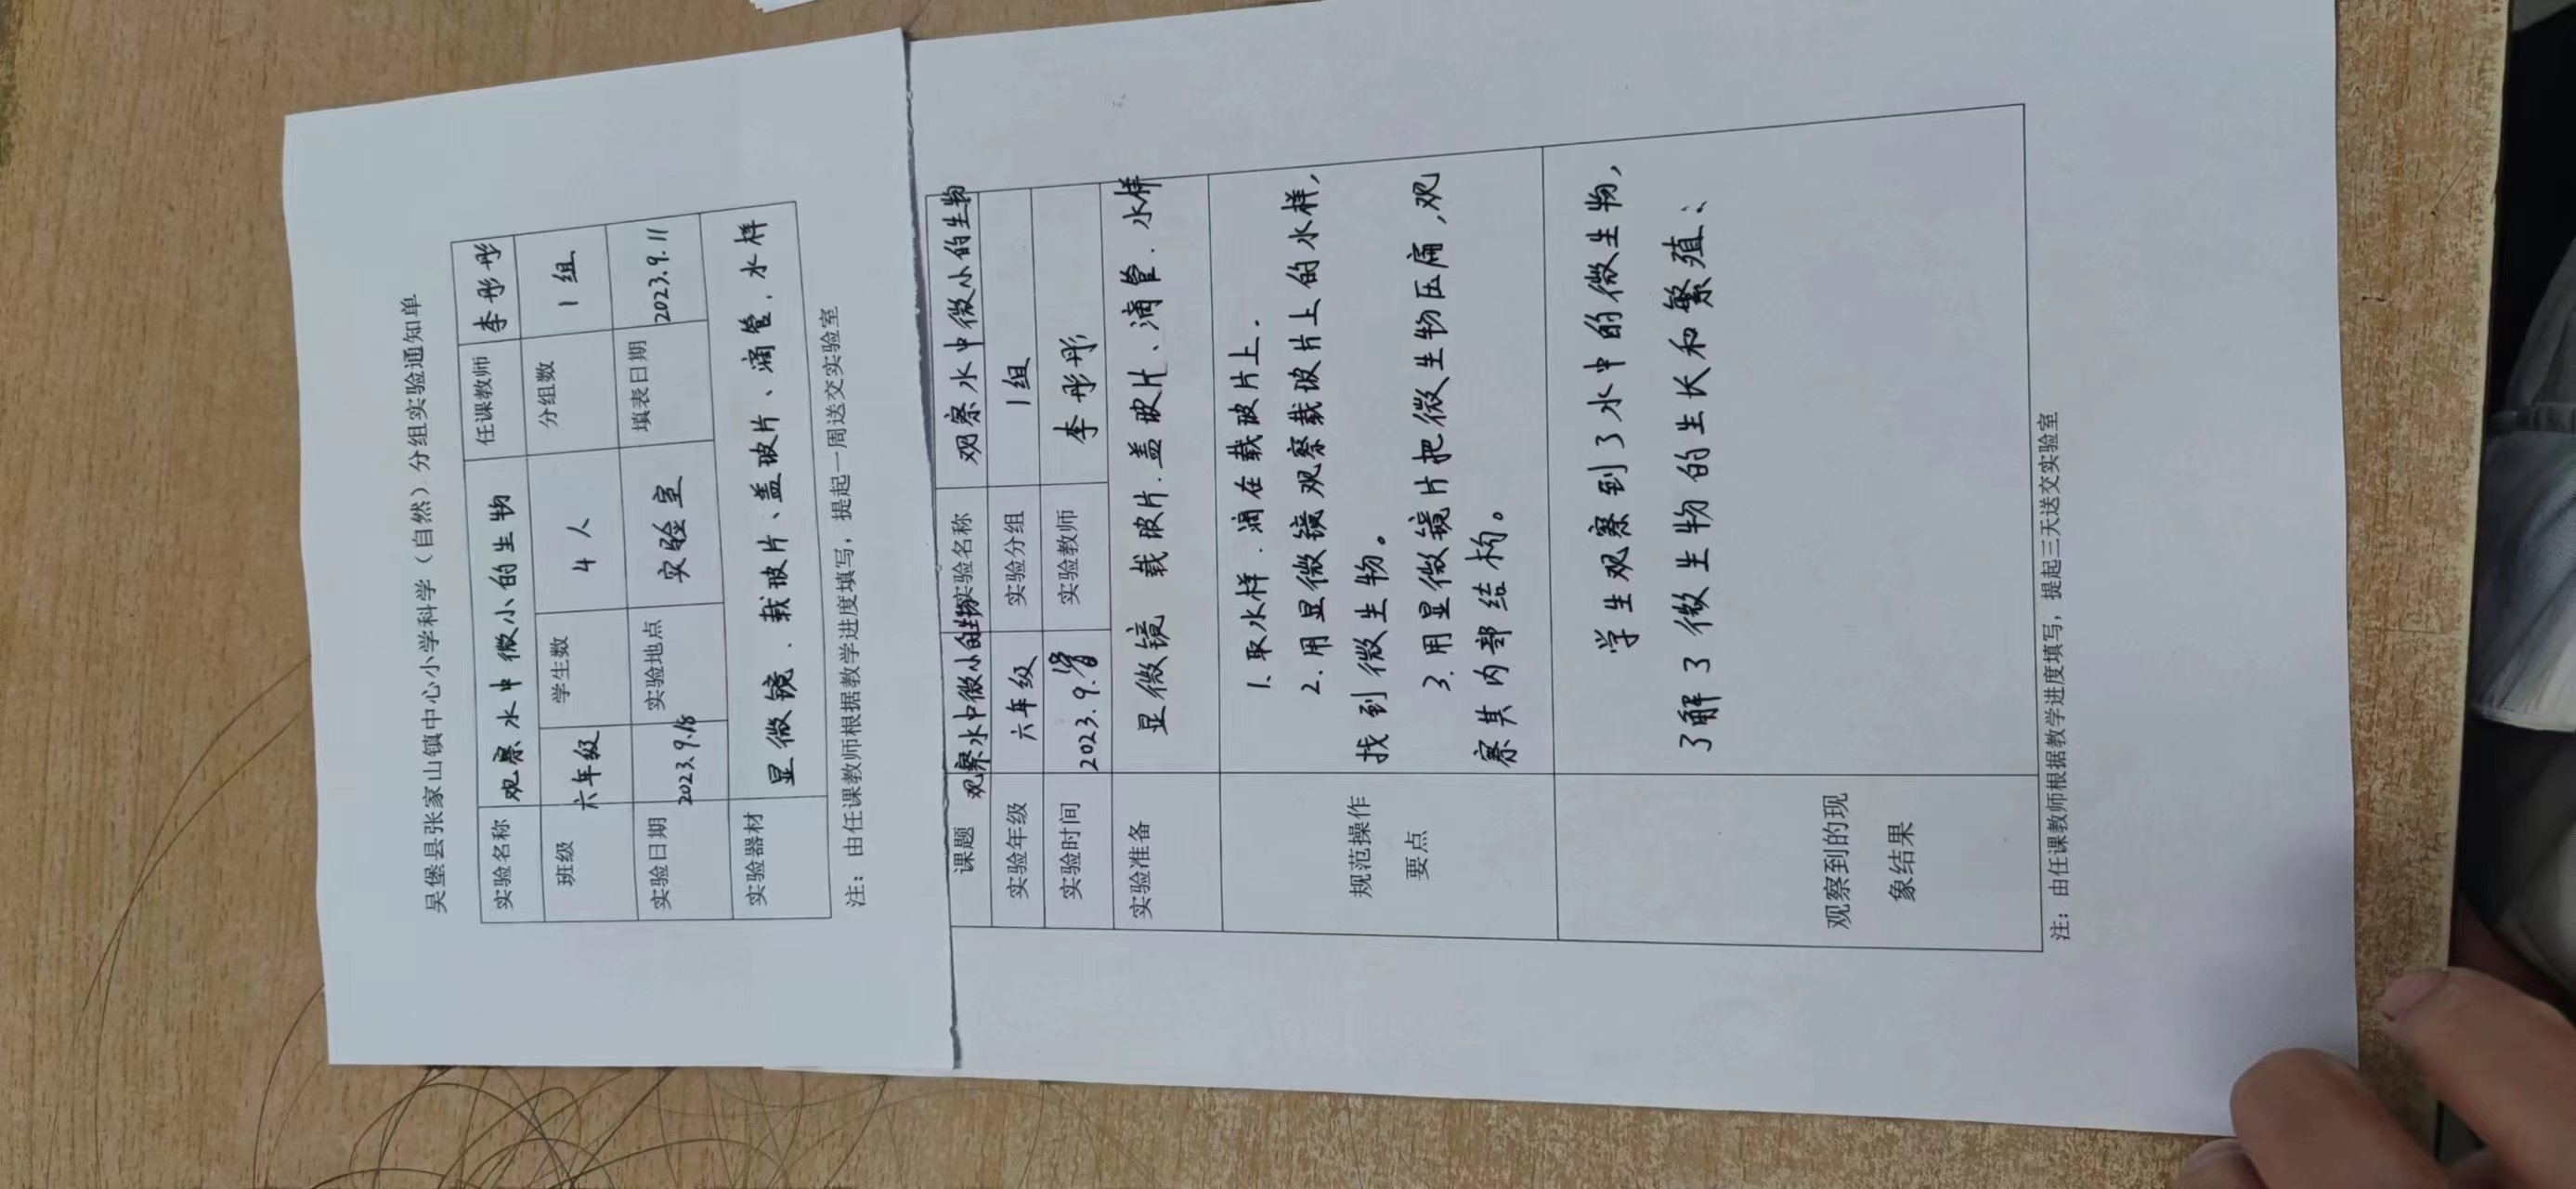 吴堡县张家山镇中心小学科学（自然）分组实验通知单
实验名称 观察水中微小的生物 任课教师 李彤彤
班级 六年级 学生数 4人 分组数 1组
实验日期 2023.9.18 实验地点 实验室 填表日期 2023.9.11
实验器材 显微镜．载玻片、盖玻片、滴管．水样
注：由任课教师根据教学进度填写，提起一周送交实验室
课题 观察水中微小的生物 实验名称 观察水中微小的生物
实验年级 六年级 实验分组 1组
实验时间 2023.9. 实验教师 李彤彤
实验准备 显微镜 载玻片．盖玻片、滴管．水样
规范操作
要点
1. 取水样．滴在载玻片上．
2. 用显微镜观察载玻片上的水样，
找到微生物。
3. 用显微镜片把微生物压扁，观
察其内部结构。
观察到的现
象结果
学生观察到了水中的微生物，
了解了微生物的生长和繁殖；
注：由任课教师根据教学进度填写，提起三天送交实验室